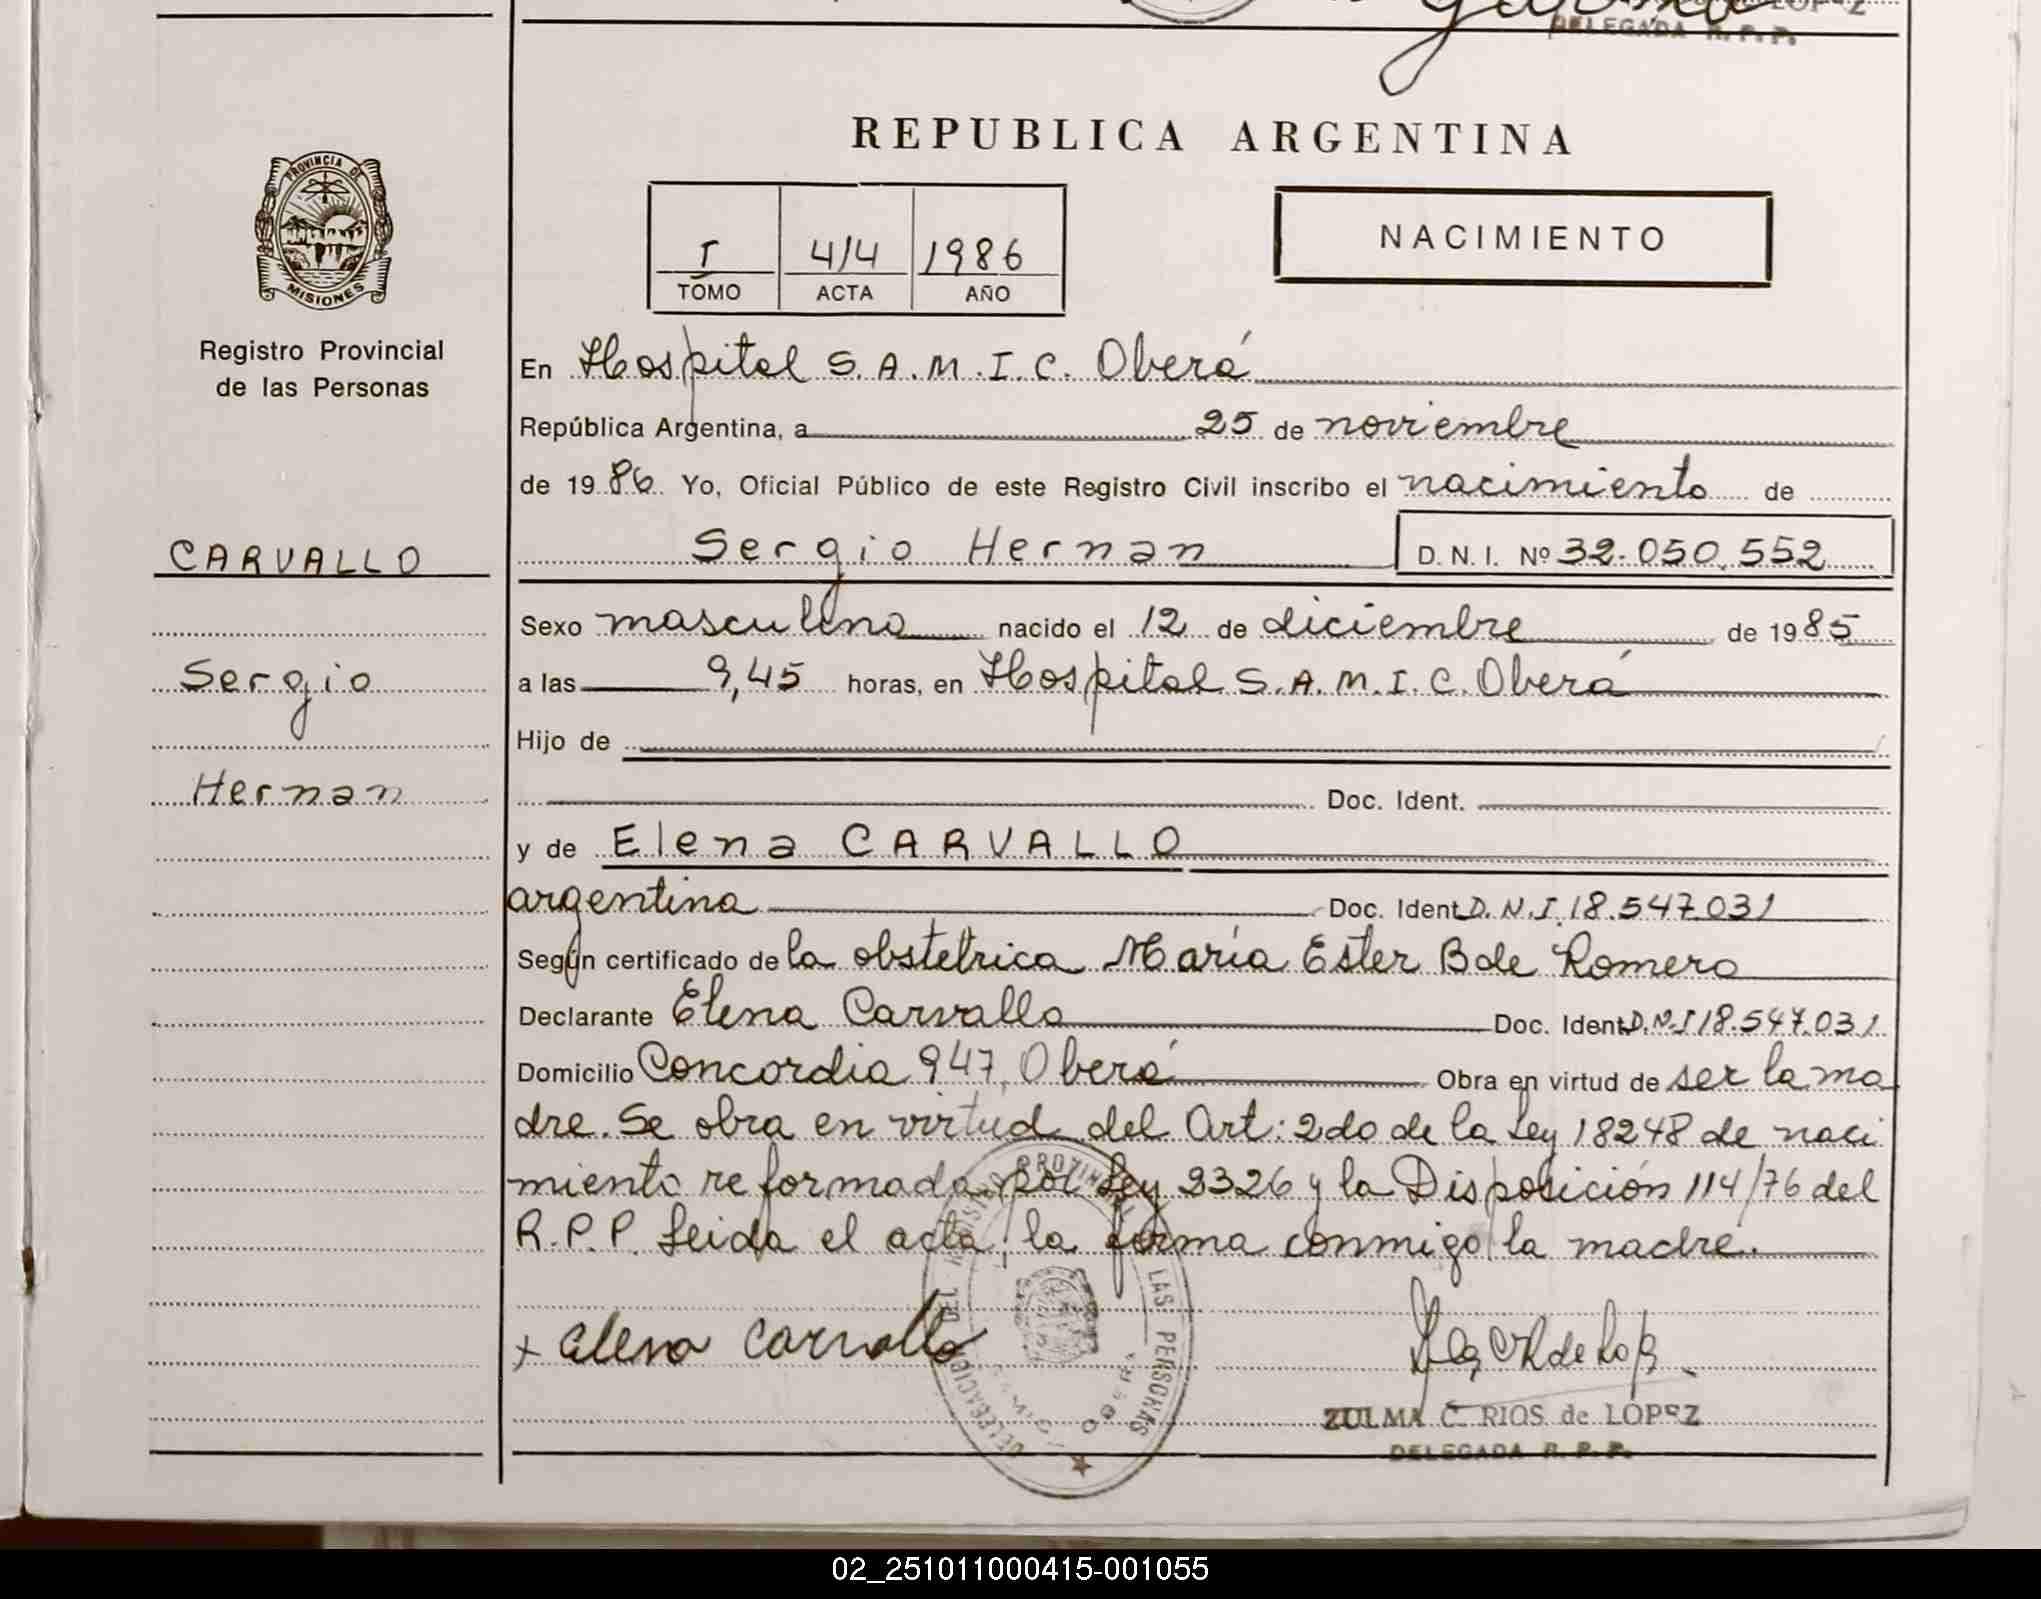 DELEGADA R. P. P.
REPUBLICA ARGENTINA
PROVINCIA DE
MISIONES
I 414 1986
TOMO ACTA AÑO
NACIMIENTO
Registro Provincial
de las Personas
En Hospital S.A.M.I.C. Oberá
República Argentina, a 25 de noviembre
de 1986 Yo, Oficial Público de este Registro Civil inscribo el nacimiento de
CARVALLO
Sergio Hernan D. N. I. Nº 32.050.552
Sexo masculino nacido el 12 de diciembre de 1985
Sergio
a las 9,45 horas, en Hospital S.A.M.I.C. Oberá
Hijo de
Hernan
Doc. Ident.
y de Elena CARVALLO
argentina Doc. Ident. D.N.I. 18.547.031
Según certificado de la obstetrica María Ester B de Romero
Declarante Elena Carvallo Doc. Ident. D.N.I 18.547.031
Domicilio Concordia 947, Oberá Obra en virtud de ser la ma
dre. Se obra en virtud del Art: 2do de la Ley 18248 de naci
miento reformada por Ley 2326 y la Disposición 114/76 del
R.P.P. Leida el acta, la firma conmigo la madre.
x Elena Carvallo
DELEGACION DEL REGISTRO PROVINCIAL DE LAS PERSONAS
ZULMA C. RIOS de LOPEZ
DELEGADA R. P. P.
02_251011000415-001055